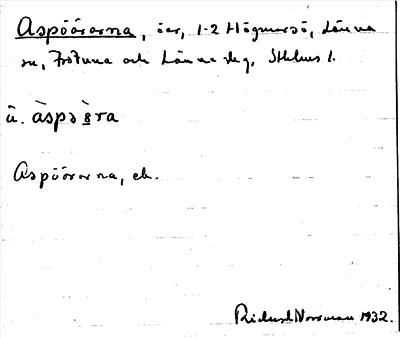 Aspöörarna, öar, 1-2 Högmarsö, Länna
sn, Frötuna och Länna skg, Sthlms l.
ü. àspə
Aspöörarna, ek.
Rickard Norrman 1932.